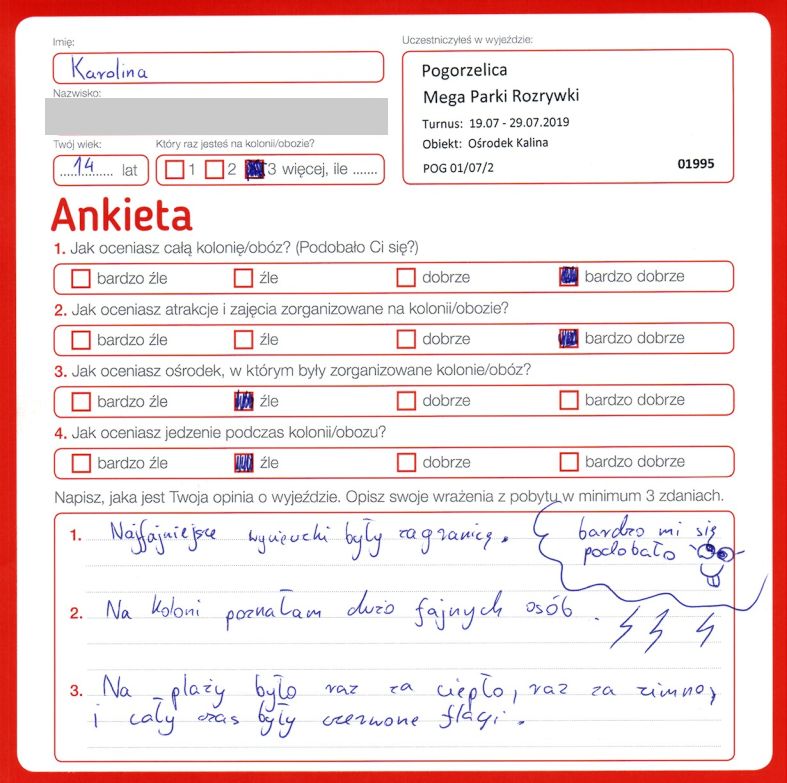 Imię:
Karolina
Nazwisko:
Twój wiek:
14 lat
Który raz jesteś na kolonii/obozie?
1 2 3 więcej, ile .......
Uczestniczyłeś w wyjeździe:
Pogorzelica
Mega Parki Rozrywki
Turnus: 19.07 - 29.07.2019
Obiekt: Ośrodek Kalina
POG 01/07/2 01995
Ankieta
1. Jak oceniasz całą kolonię/obóz? (Podobało Ci się?)
bardzo źle źle dobrze bardzo dobrze
2. Jak oceniasz atrakcje i zajęcia zorganizowane na kolonii/obozie?
bardzo źle źle dobrze bardzo dobrze
3. Jak oceniasz ośrodek, w którym były zorganizowane kolonie/obóz?
bardzo źle źle dobrze bardzo dobrze
4. Jak oceniasz jedzenie podczas kolonii/obozu?
bardzo źle źle dobrze bardzo dobrze
Napisz, jaka jest Twoja opinia o wyjeździe. Opisz swoje wrażenia z pobytu w minimum 3 zdaniach.
1. Najfajniejsze wycieczki były za granicę.
bardzo mi się
podobało
2. Na koloni poznałam dużo fajnych osób.
3. Na plaży było raz za ciepło, raz za zimno,
i cały czas były czerwone flagi.